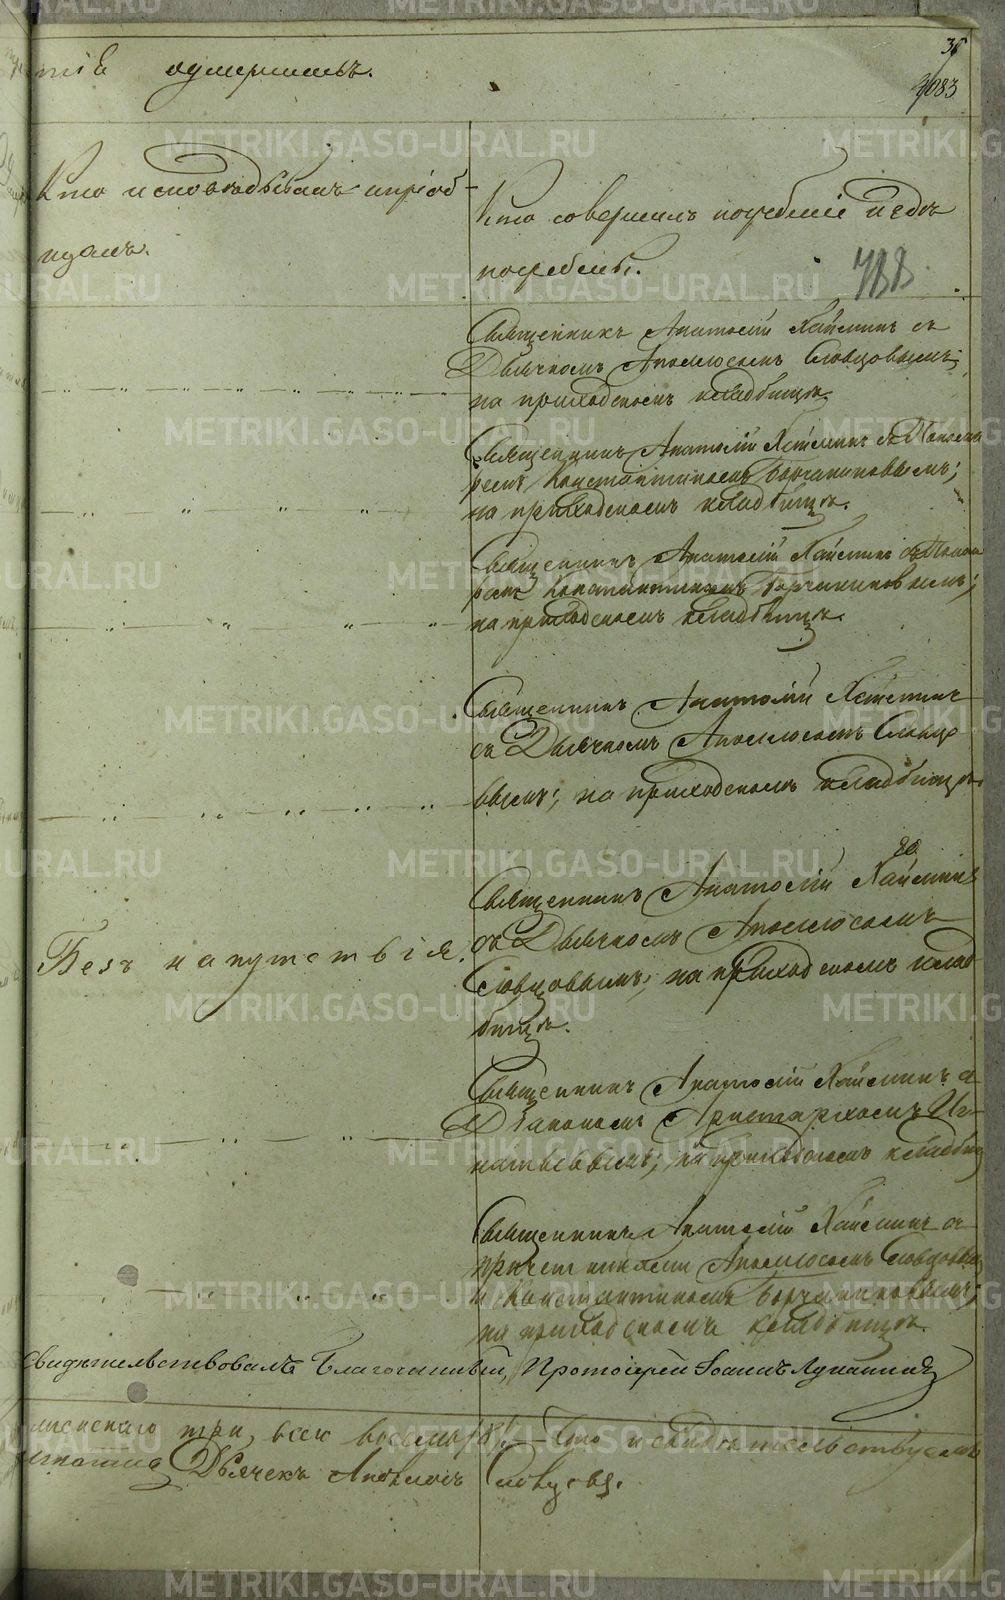 тiе умершихъ.
36
1083
Кто исповѣдывалъ и прiоб
щалъ.
Кто совершалъ погребенiе и гдѣ
погребены.
788
Священникъ Анатолiй Хайминъ съ
Дьячкомъ Аполлосомъ Словцовымъ;
на приходскомъ кладбищѣ.
Священникъ Анатолiй Хайминъ съ Поном
ремъ Константиномъ
на приходскомъ кладбищѣ.
Священникъ Анатолiй Хайминъ съ Понома
ремъ Константиномъ
на приходскомъ кладбищѣ.
Священникъ Анатолiй Хайминъ
съ Дьячкомъ Аполлосомъ Словцо
вымъ; на приходскомъ кладбищѣ.
Священникъ Анатолiй Хайминъ
Безъ напутствiя.
съ Дьячкомъ Аполлосомъ
Словцовымъ; на приходскомъ клад
бищѣ.
Священникъ Анатолiй Хайминъ съ
Дiакономъ Аристархомъ Иг-
натьевымъ; на приходскомъ кладбищ
Священникъ Анатолiй Хайминъ съ
причетниками Аполлосомъ Словцовым
и Константиномъ
на приходскомъ кладбищѣ.
Свидѣтельствовалъ Благочинный, Протоiерей Iоаннъ
женскаго три, всего восемь /8/. Что и свидѣтельствуемъ
Дьячекъ Аполлосъ Словцовъ.
METRIKI.GASO-URAL.RU